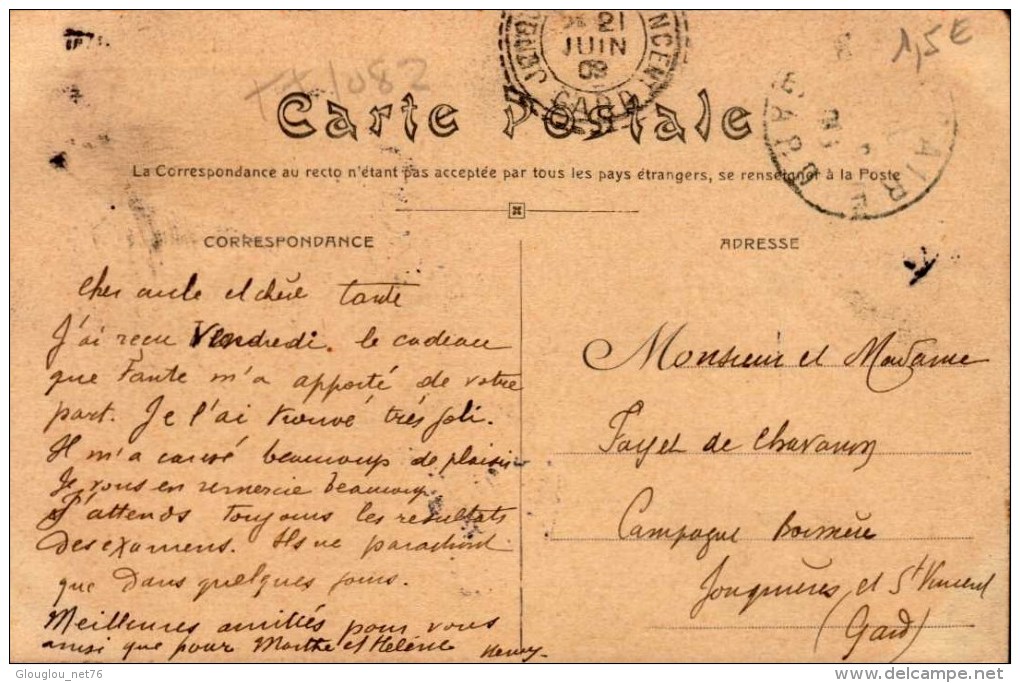 1,5 €
TX 1082
21
JUIN
09
GARD
Carte Postale
La Correspondance au recto n'étant pas acceptée par tous les pays étrangers, se renseigner à la Poste
CORRESPONDANCE
ADRESSE
Cher oncle et chère Tante
J'ai reçu Vendredi le cadeau
que Tante m'a apporté de votre
part. Je l'ai trouvé très joli.
Il m'a causé beaucoup de plaisir
Je vous en remercie beaucoup
J'attends toujours les résultats
des examens. Ils ne paraitront
que dans quelques jours.
Meilleures amitiés pour vous
ainsi que pour Marthe et Hélène
Monsieur et Madame
Fayet de Chavanon
Campagne
Jonquières et St Vincent
(Gard)
Glouglou_net76
delcampe.net